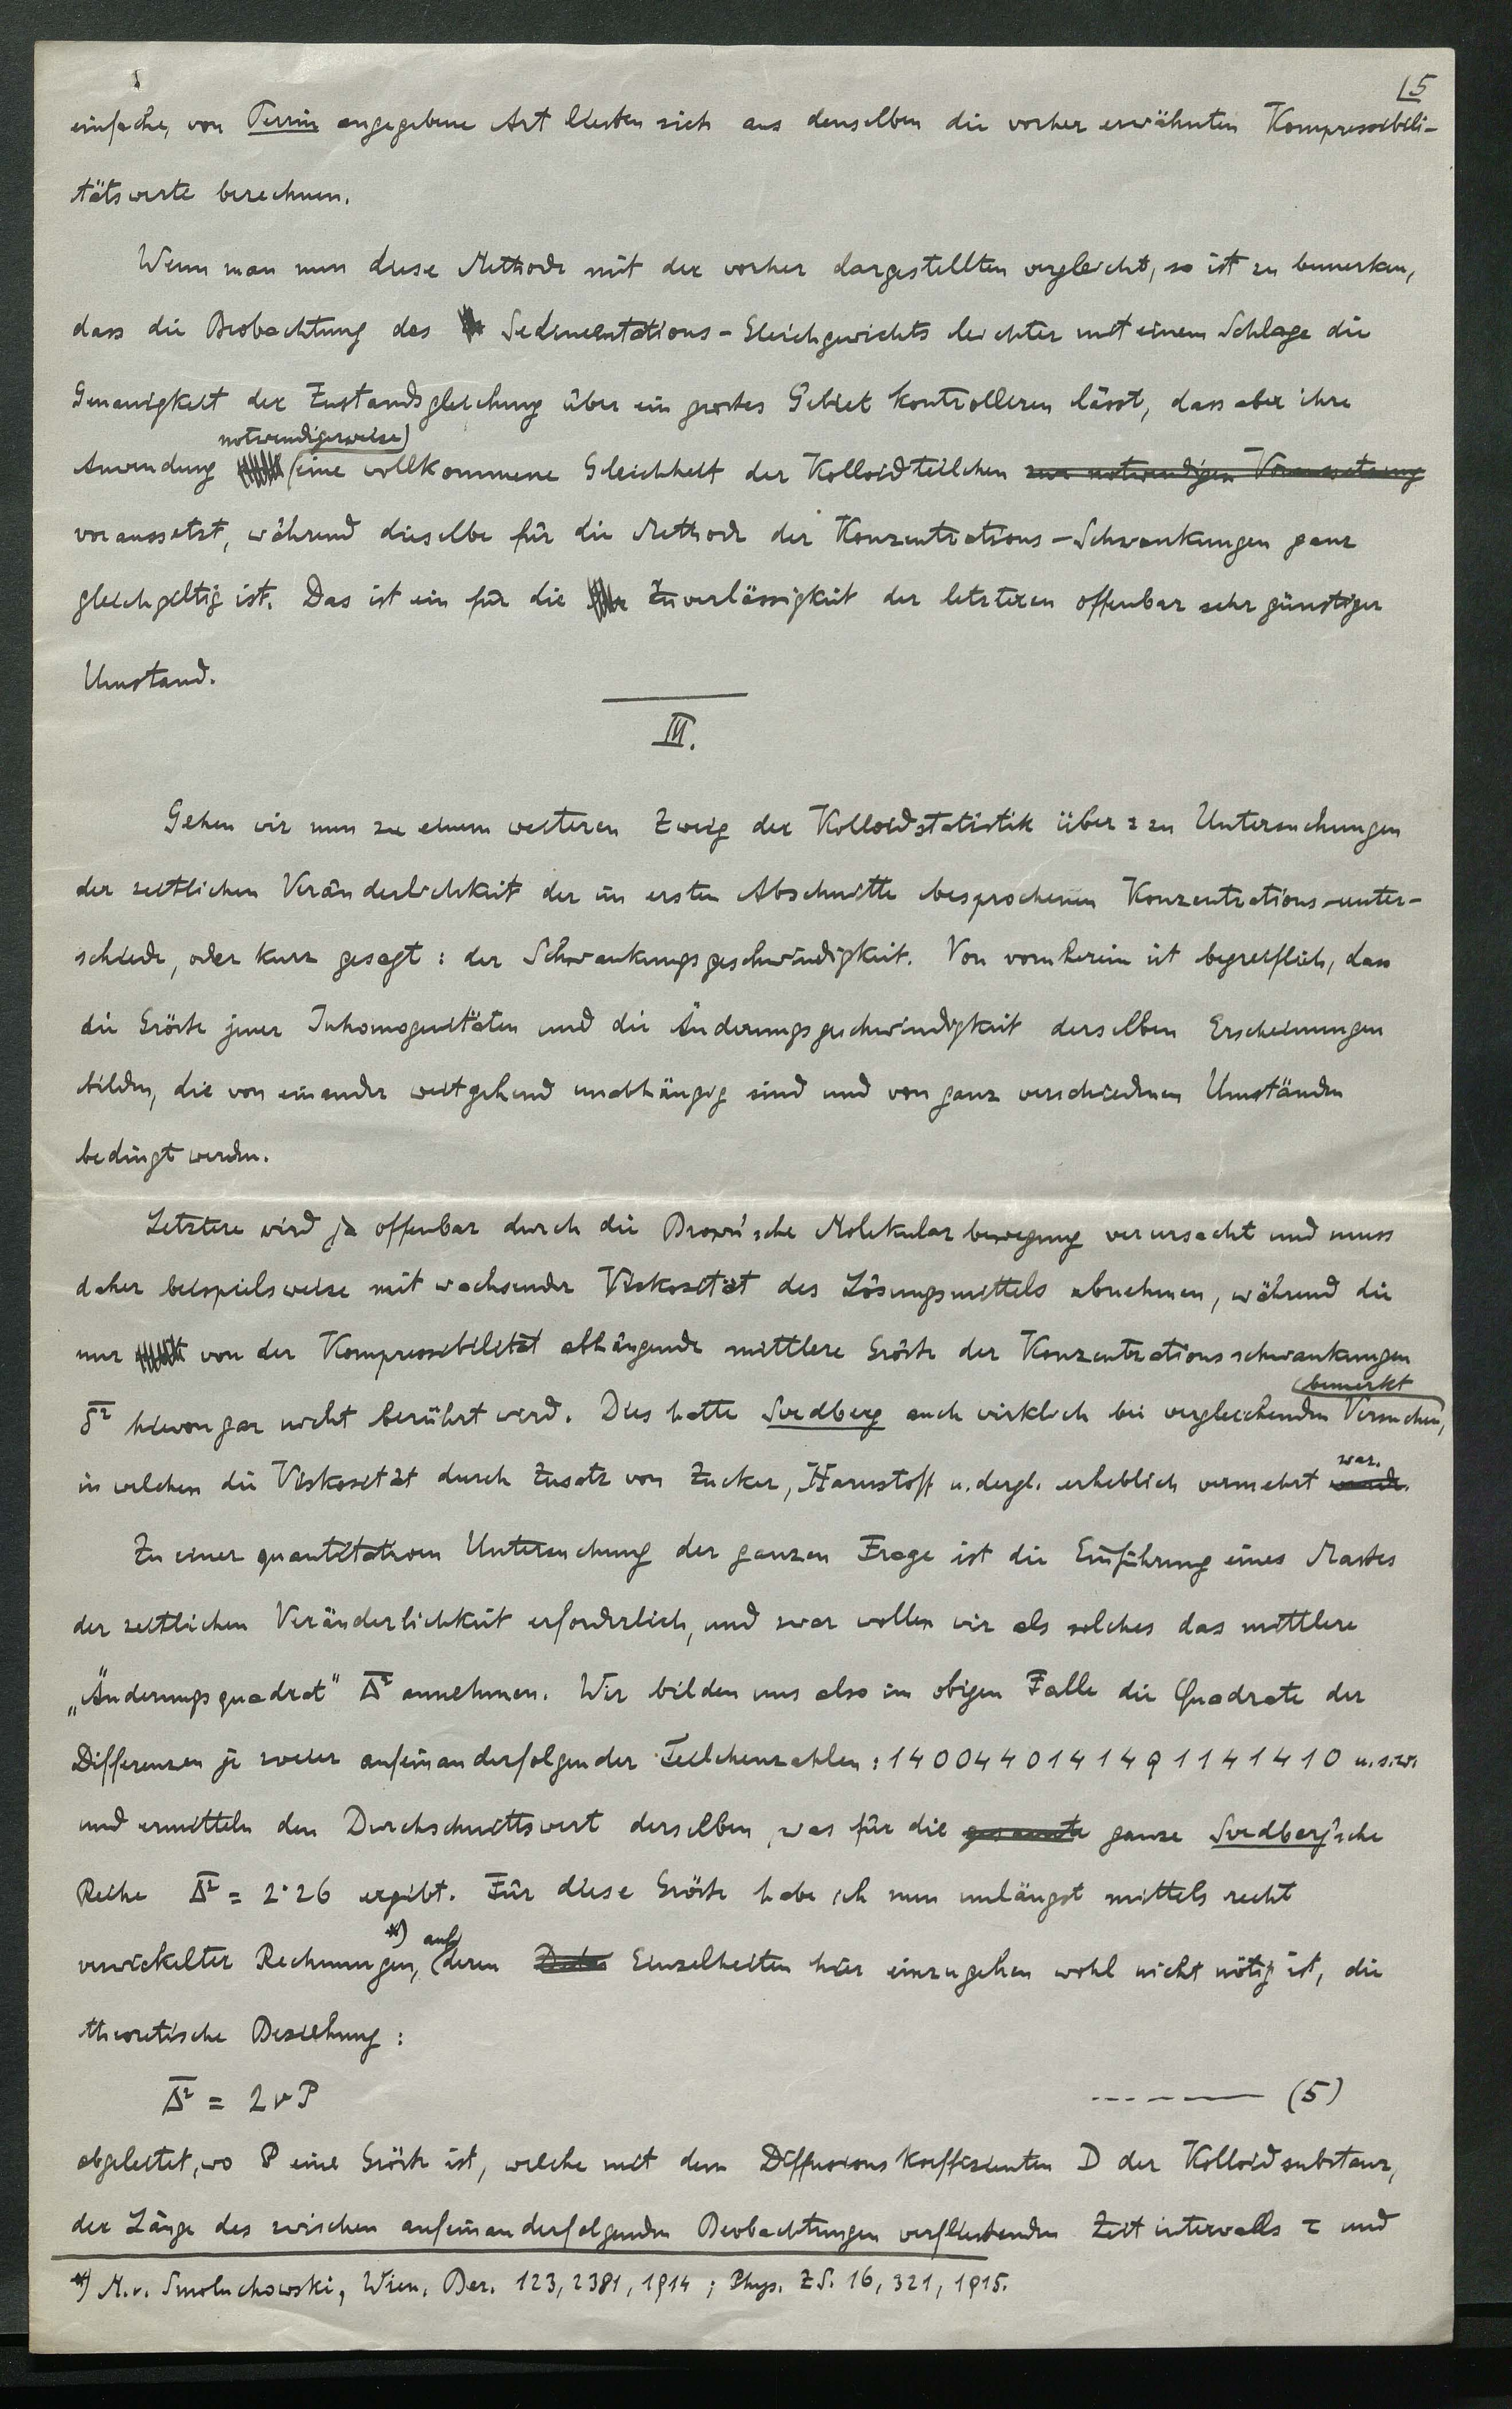 5
einfache, von Perrin angegebene Art liessen sich aus denselben die vorher erwähnten Kompressibili-
tätswerte berechnen.
Wenn man nun diese Methode mit der vorher dargestellten vergleicht, so ist zu bemerken,
dass die Beobachtung des Sedimentations-Gleichgewichts leichter mit einem Schlage die
Genauigkeit der Zustandsgleichung über ein grosses Gebiet kontrollieren lässt, dass aber ihre
notwendigerweise)
Anwendung (eine vollkommene Gleichheit der Kolloidteilchen zur notwendigen Voraussetzung
voraussetzt, während dieselbe für die Methode der Konzentrations-Schwankungen ganz
gleichgeltig ist. Das ist ein für die Zuverlässigkeit der letzteren offenbar sehr günstiger
Umstand.
III.
Gehen wir nun zu einem weiteren Zweig der Kolloidstatistik über: zu Untersuchungen
der zeitlichen Veränderlichkeit der im ersten Abschnitte besprochenen Konzentrations-unter-
schiede, oder kurz gesagt: der Schwankungsgeschwindigkeit. Von vornherein ist begreiflich, dass
die Grösse jener Inhomogenitäten und die Änderungsgeschwindigkeit derselben Erscheinungen
bilden, die von einander weitgehend unabhängig sind und von ganz verschiedenen Umständen
bedingt werden.
Letztere wird ja offenbar durch die Brown'sche Molekularbewegung verursacht und muss
daher beispielsweise mit wachsender Viskosität des Lösungsmittels abnehmen, während die
nur von der Kompressibilität abhängende mittlere Grösse der Konzentrationsschwankungen
(bemerkt
δ̅² hievon gar nicht berührt wird. Dies hatte Svedberg auch wirklich bei vergleichenden Versuchen,
war.
in welchen die Viskosität durch Zusatz von Zucker, Harnstoff u. dergl. erheblich vermehrt wurde.
Zu einer quantitativen Untersuchung der ganzen Frage ist die Einführung eines Masses
der zeitlichen Veränderlichkeit erforderlich, und zwar wollen wir als solches das mittlere
„Änderungsquadrat" Δ̅² annehmen. Wir bilden uns also im obigen Falle die Quadrate der
Differenzen je zweier aufeinanderfolgender Teilchenzahlen: 1 4 0 0 4 4 0 1 4 1 4 9 1 1 4 1 4 1 0 u.s.w.
und ermitteln den Durchschnittswert derselben, was für die gesamte ganze Svedberg'sche
Reihe Δ̅² = 2·26 ergibt. Für diese Grösse habe ich nun unlängst mittels recht
*) auf
verwickelter Rechnungen, (deren Einzelheiten hier einzugehen wohl nicht nötig ist, die
theoretische Beziehung:
Δ̅² = 2νP ------ (5)
abgeleitet, wo P eine Grösse ist, welche mit dem Diffusionskoeffizienten D der Kolloidsubstanz,
der Länge des zwischen aufeinanderfolgenden Beobachtungen verfliessenden Zeitintervalls τ und
*) M. v. Smoluchowski, Wien. Ber. 123, 2381, 1914; Phys. ZS. 16, 321, 1915.